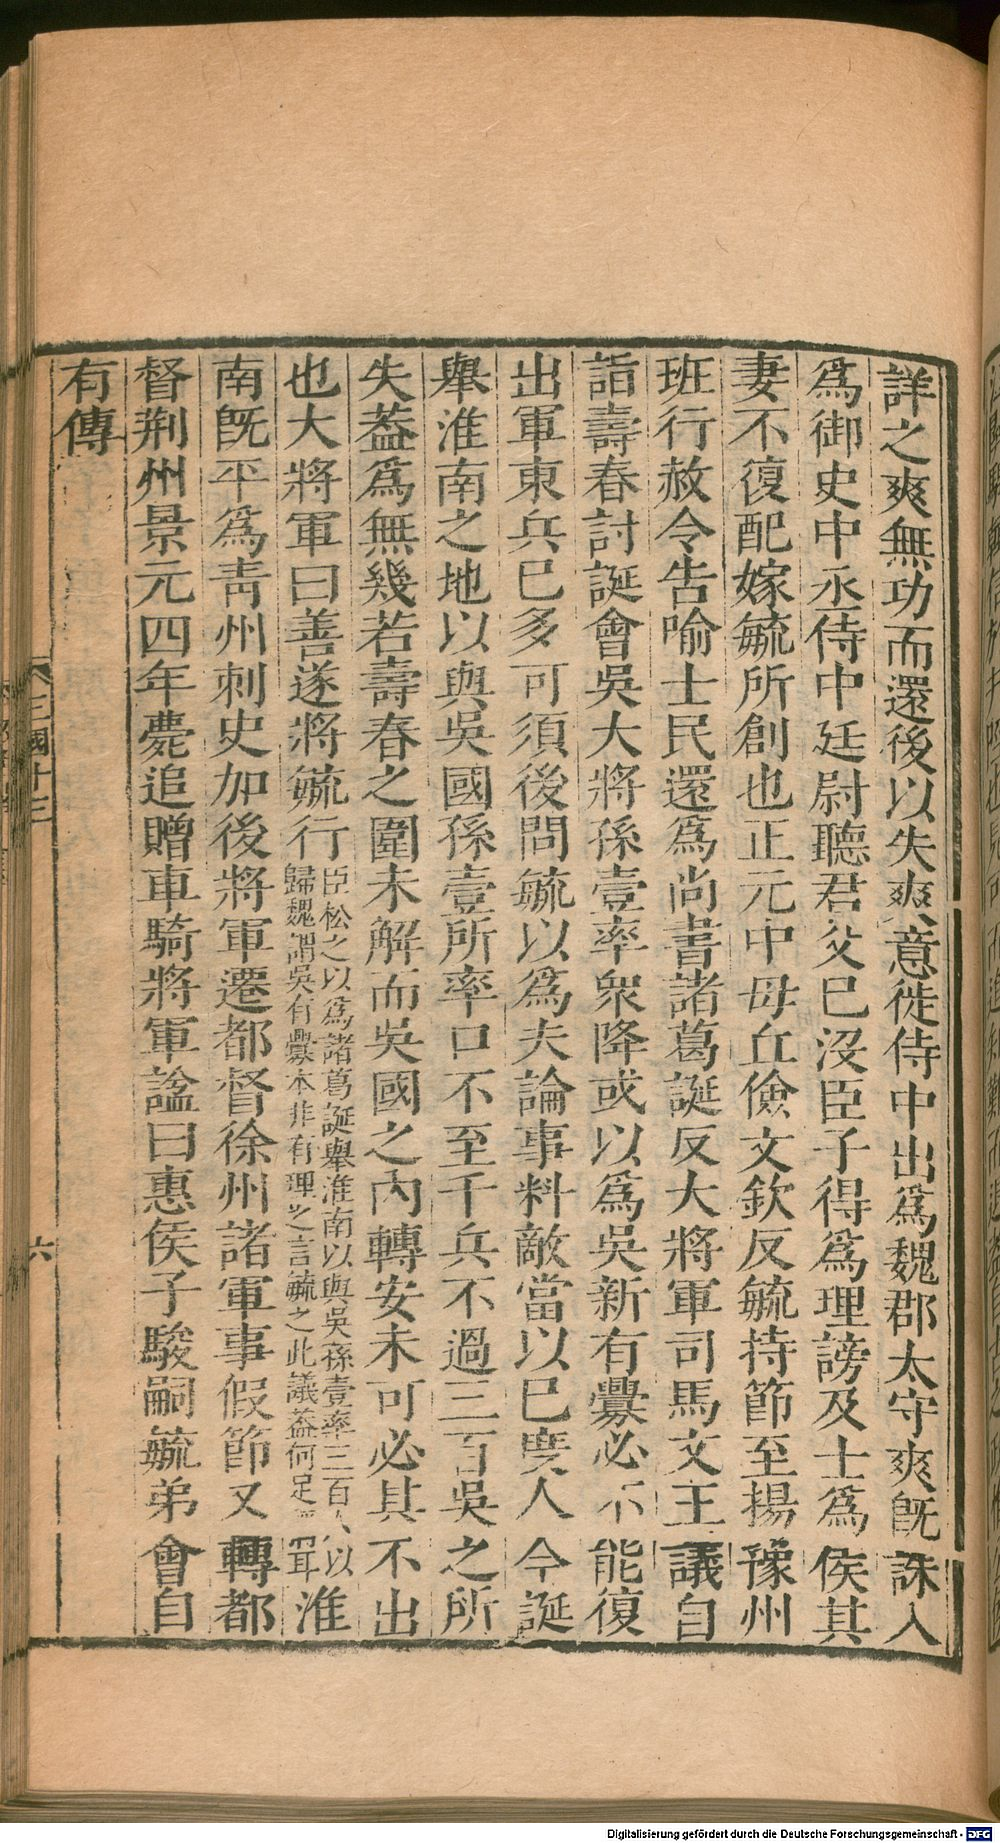 詳之爽無功而還後以失爽意徙侍中出爲魏郡太守爽旣誅入
爲御史中丞侍中廷尉聽君父已沒臣子得爲理謗及士爲侯其
妻不復配嫁毓所創也正元中毋丘儉文欽反毓持節至揚豫州
班行赦令告喻士民還爲尚書諸葛誕反大將軍司馬文王議自
詣壽春討誕會吳大將孫壹率衆降或以爲吳新有釁必不能復
出軍東兵已多可須後問毓以爲夫論事料敵當以已度人今誕
舉淮南之地以與吳國孫壹所率口不至千兵不過三百吳之所
失葢爲無幾若壽春之圍未解而吳國之內轉安未可必其不出
也大將軍曰善遂將毓行
臣松之以爲諸葛誕舉淮南以與吳孫壹率三百人以
歸魏謂吳有釁本非有理之言毓之此議葢何足耳
淮
南旣平爲靑州刺史加後將軍遷都督徐州諸軍事假節又轉都
督荆州景元四年薨追贈車騎將軍諡曰惠侯子駿嗣毓弟會自
有傳
三國十三
六
Digitalisierung gefördert durch die Deutsche Forschungsgemeinschaft - DFG